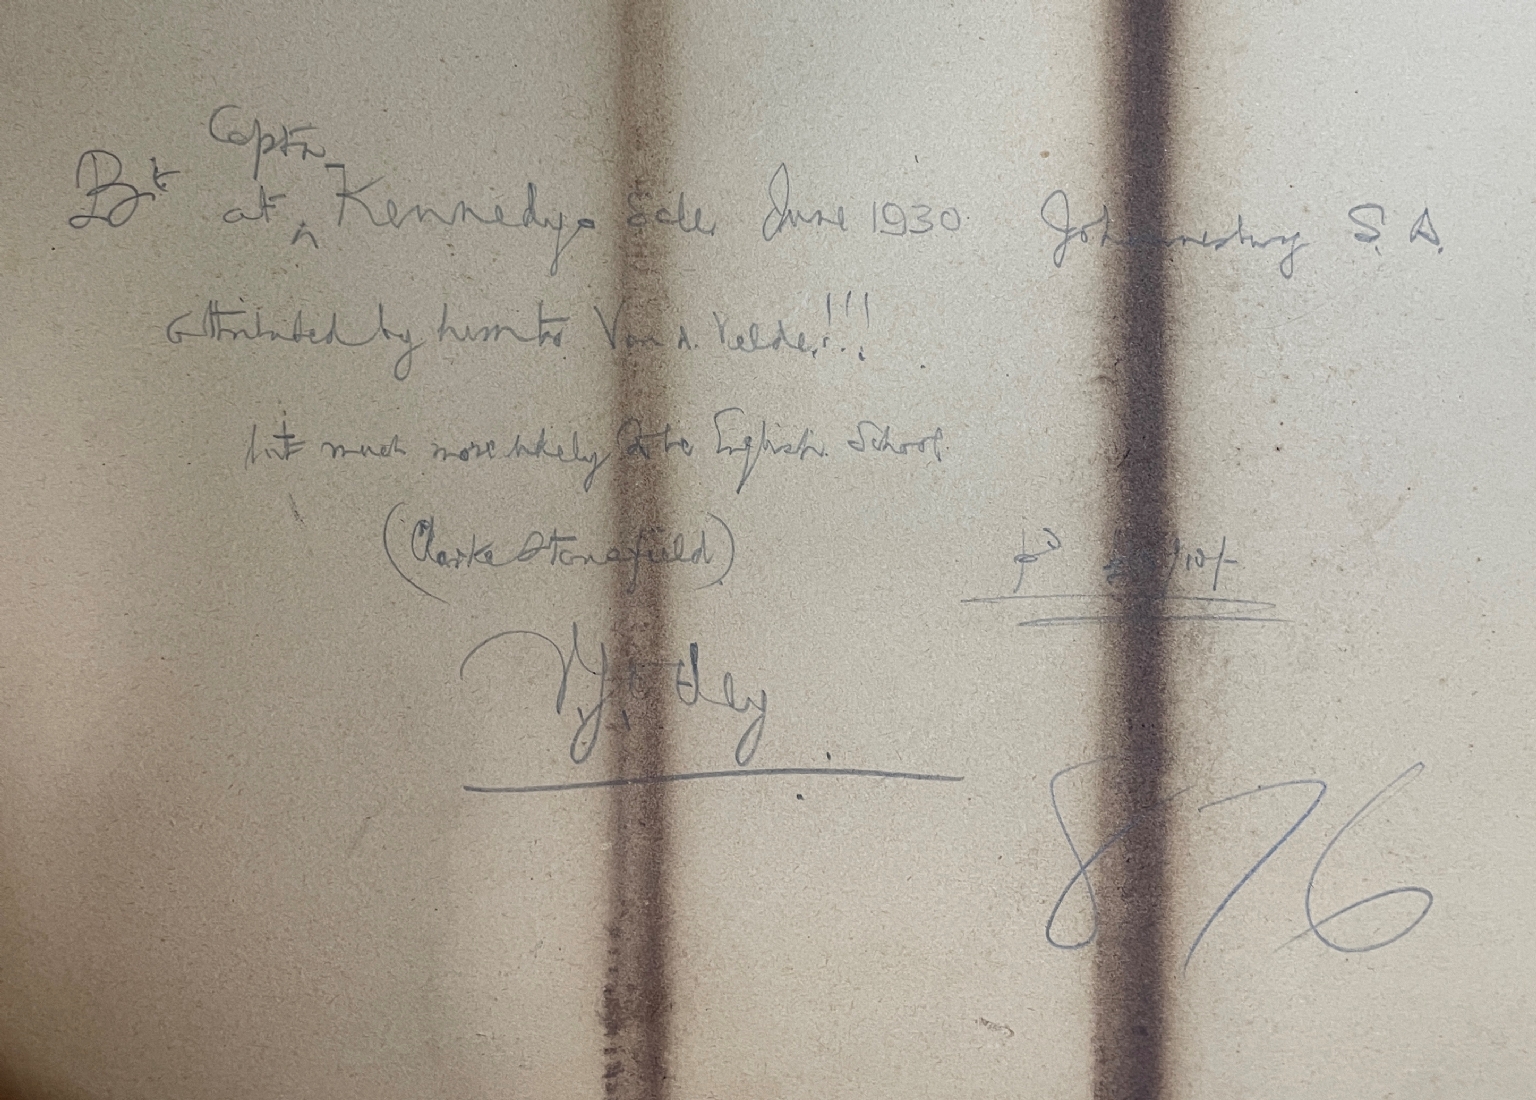 Bt at Captn Kennedys Sale, June 1930 Johannesburg S.A.
attributed by him to Van d. Velde!!!!
but much more likely to be English School.
(Clarke Stonefield) pd 10/-
876